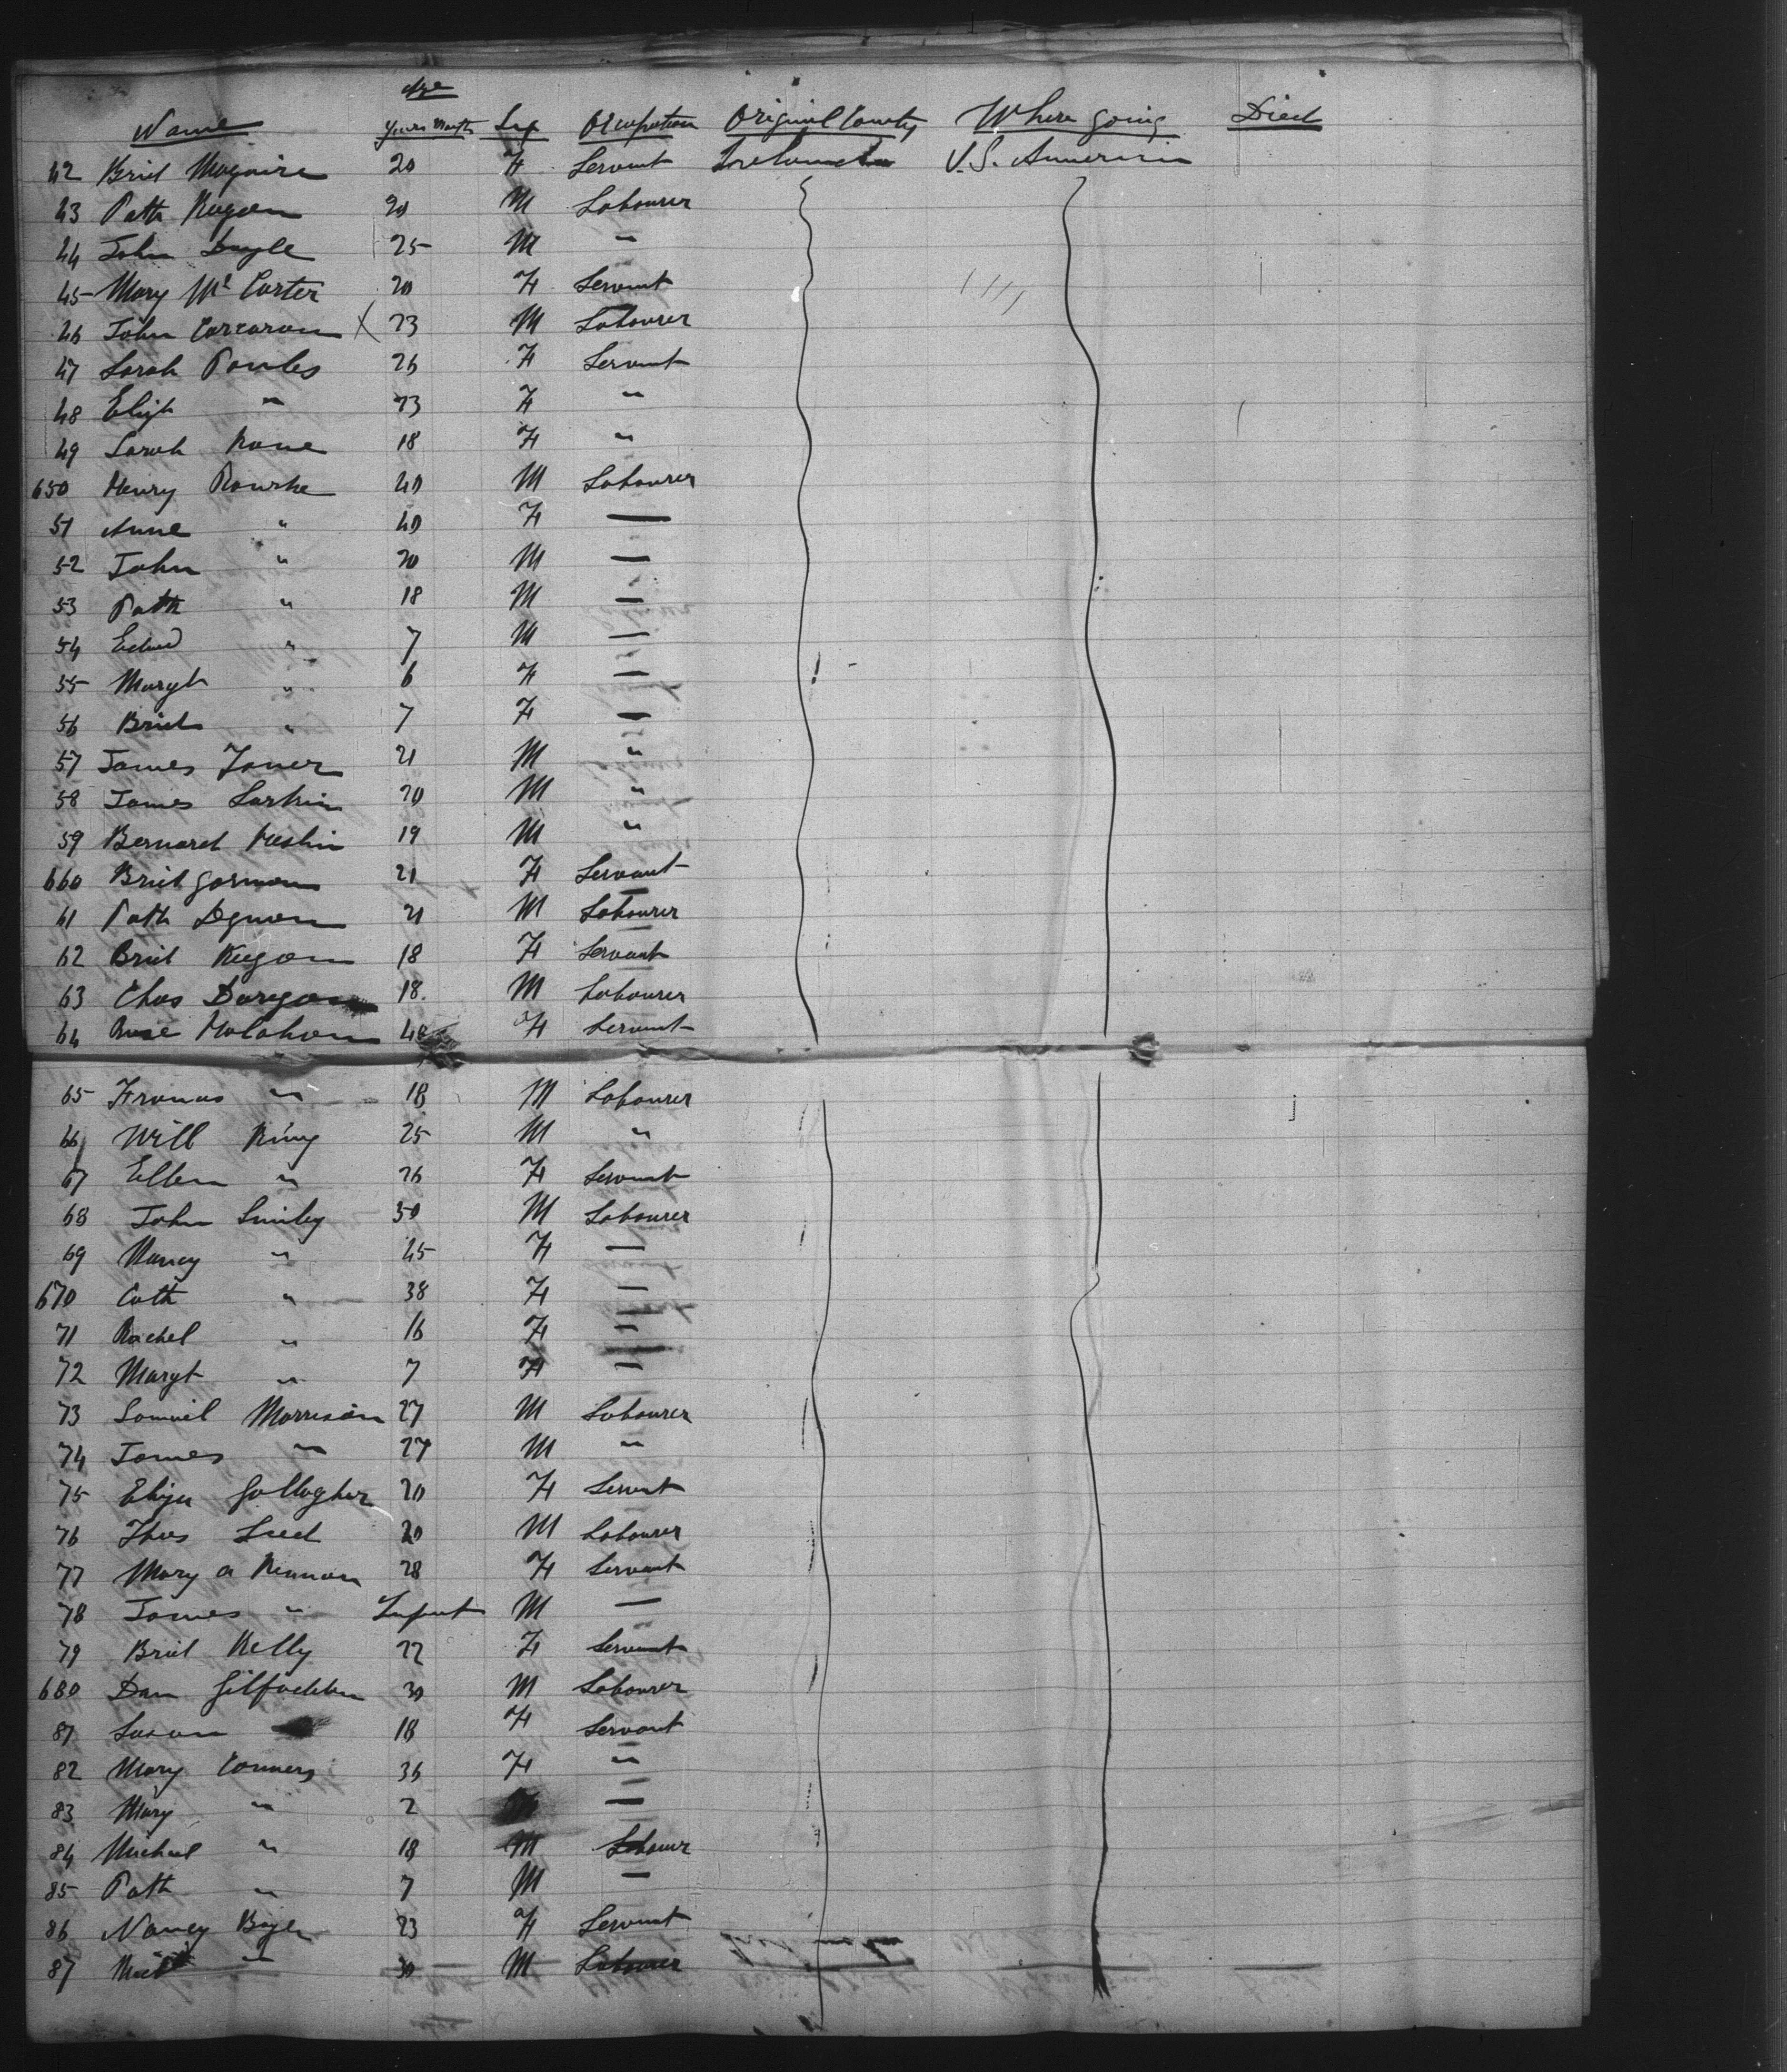 Age
Name Years Month Sex Occupation Original Country Where going Died
42 Brid Maguire 20 F Servant Ireland U.S. America
43 Patk Kegan 20 M Labourer
44 John Doyle 25 M "
45 Mary Mc Carter 20 F Servant
46 John Corcoran X 23 M Labourer
47 Sarah Powles 26 F Servant
48 Eliza " 23 F "
49 Sarah Kane 18 F "
650 Henry Rourke 40 M Labourer
51 Anne " 40 F —
52 John " 20 M —
53 Patk " 18 M —
54 Edwd " 7 M —
55 Margt " 6 F —
56 Brid " 7 F —
57 James 21 M "
58 James Larkin 20 M "
59 Bernard 19 M "
660 Brid Gorman 21 F Servant
61 Patk 21 M Labourer
62 Brid Keegan 18 F Servant
63 Chas 18 M Labourer
64 Rose Holohan 48 F Servant
65 Francis " 18 M Labourer
66 Will King 25 M "
67 Ellen " 26 F Servant
68 John Smiley 50 M Labourer
69 Nancy " 45 F —
670 Cath " 38 F —
71 Rachel " 16 F —
72 Margt " 7 F —
73 Samuel Morrison 27 M Labourer
74 James " 27 M "
75 Eliza Gallagher 20 F Servant
76 Thos 20 M Labourer
77 Mary A Kennan 28 F Servant
78 James " Infant M —
79 Brid Kelly 22 F Servant
680 Dan 30 M Labourer
81 Susan 18 F Servant
82 Mary Conners 36 F "
83 Mary " 2 —
84 Michael " 18 M Labourer
85 Patk " 7 M —
86 Nancy Boyle 23 F Servant
87 " 30 M Labourer